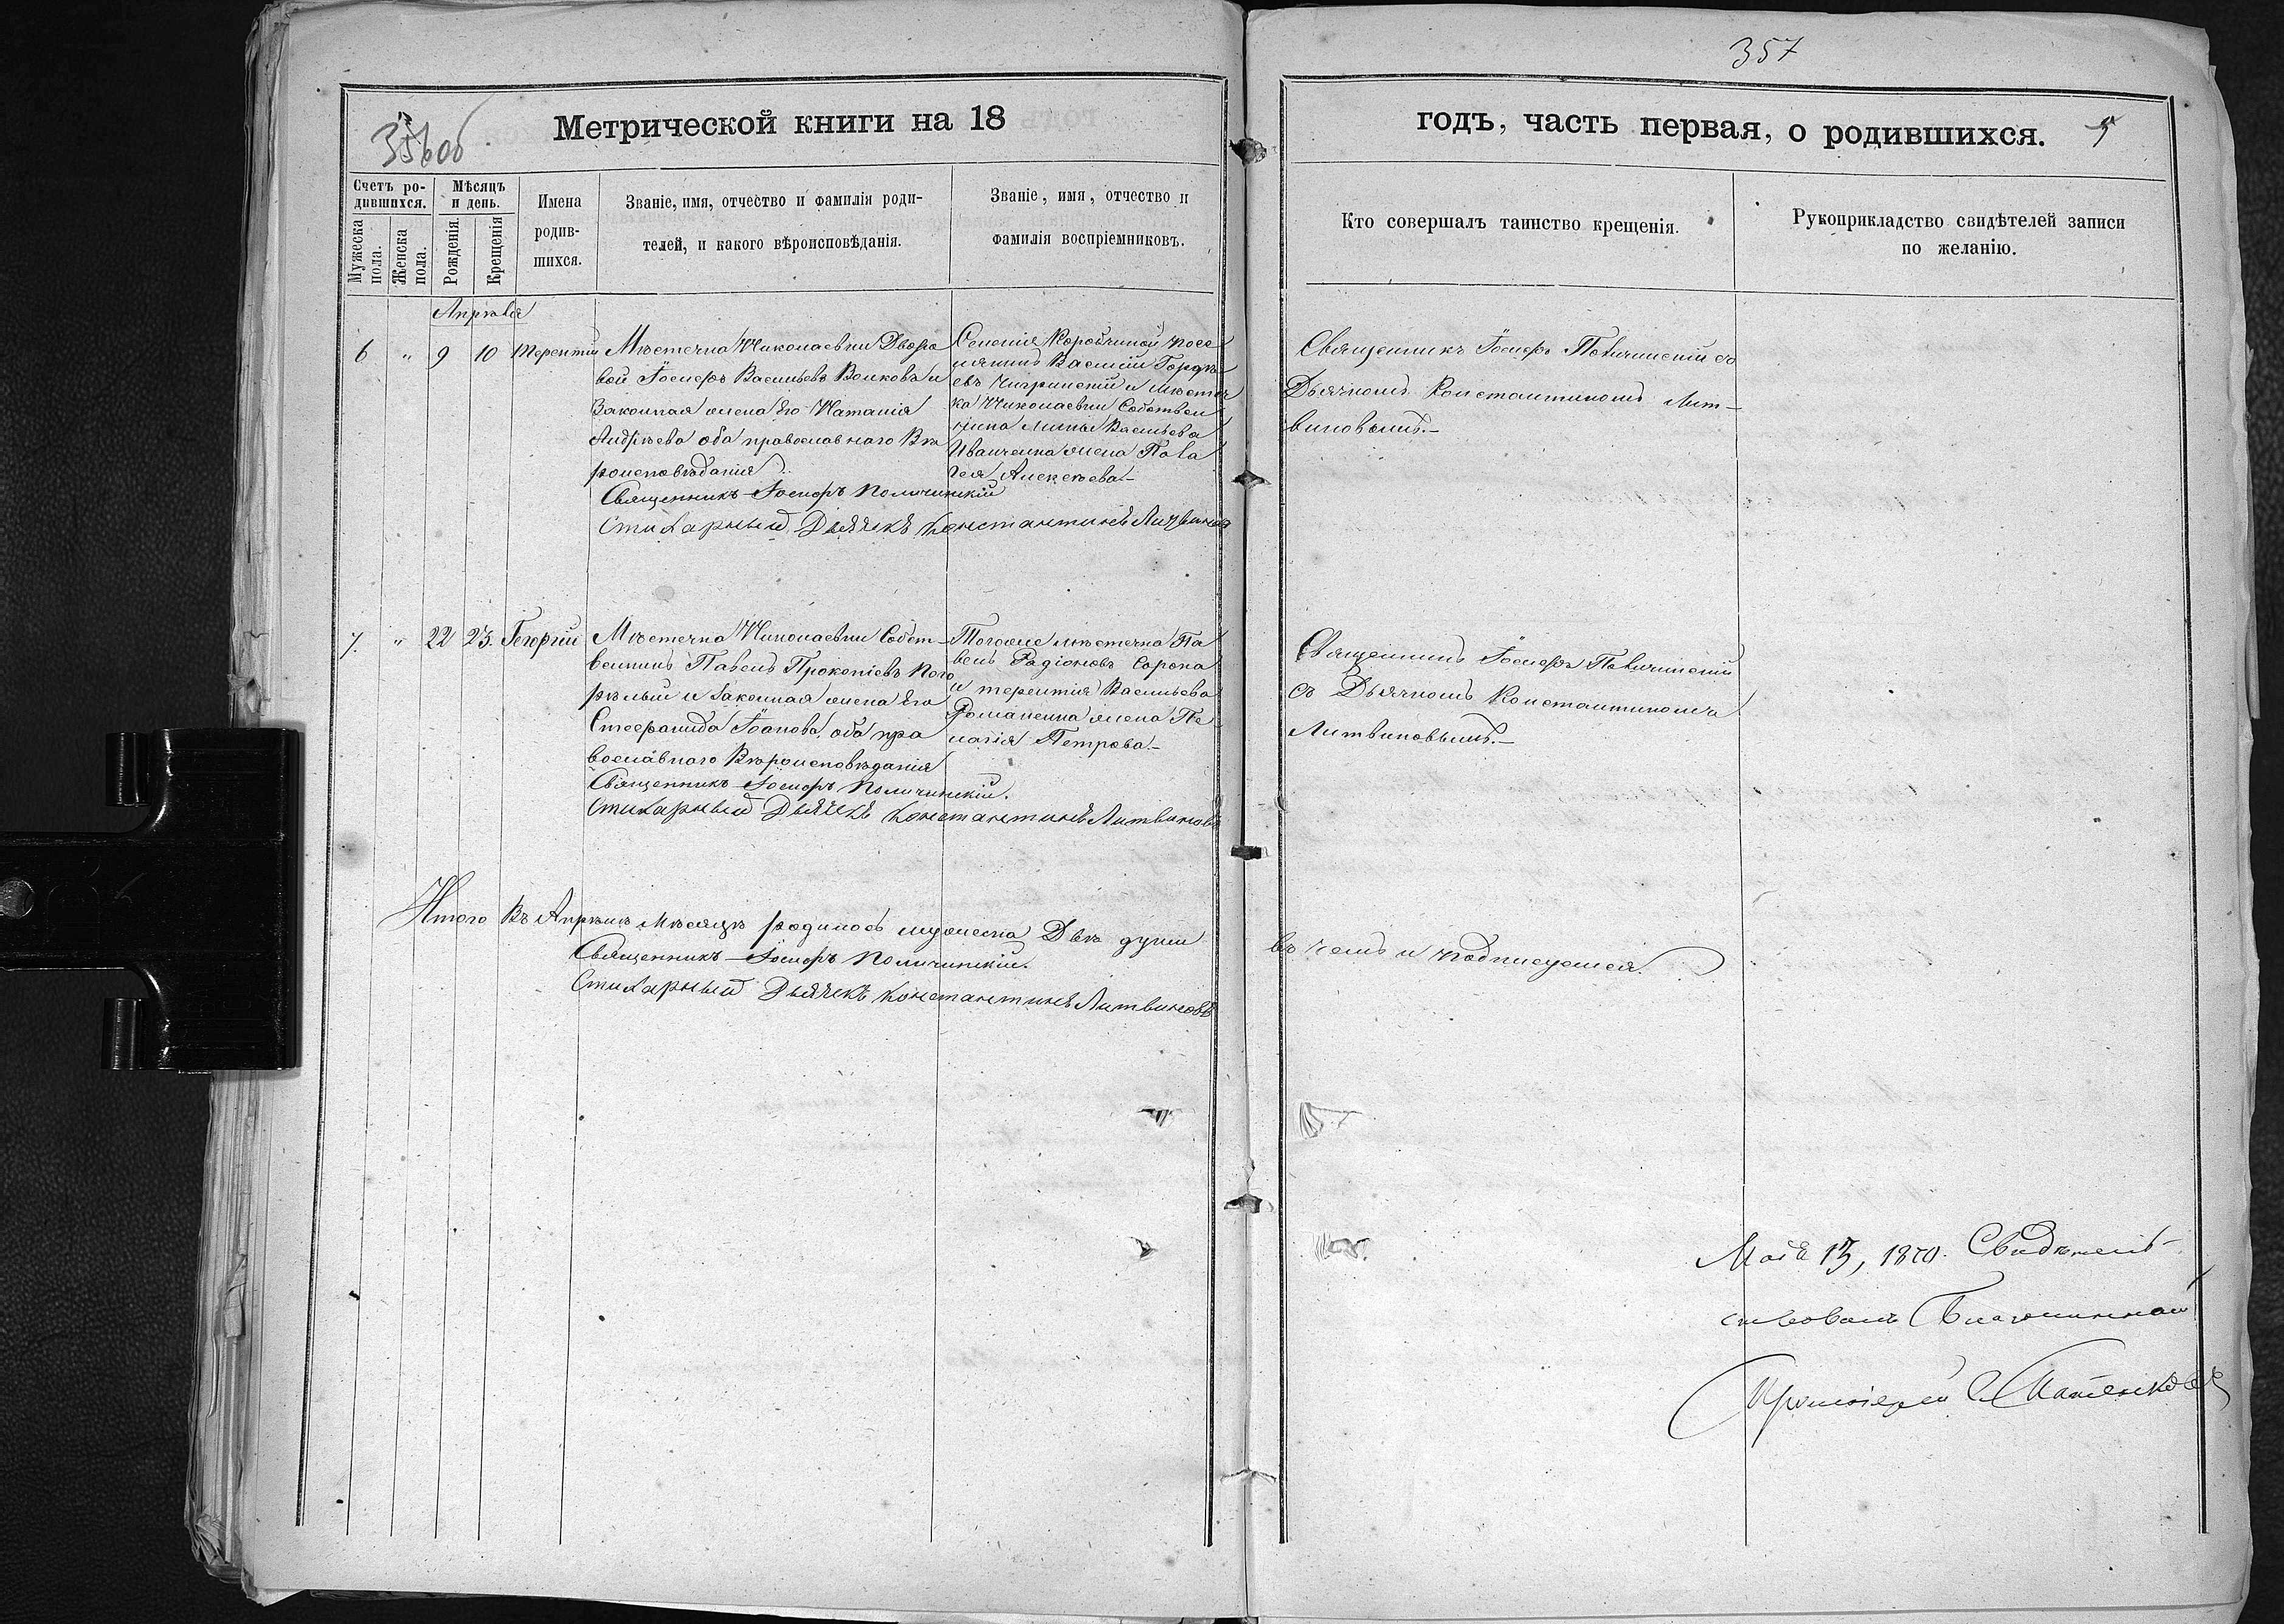 357
356об
Метрической книги на 18
годъ, часть первая, о родившихся.
5
Счетъ ро-
дившихся.
Мужеска
пола.
Женска
пола.
Мѣсяцъ
и день.
Рожденія.
Крещенія
Имена
родив-
шихся.
Званіе, имя, отчество и фамилія роди-
телей, и какого вѣроисповѣданія.
Званіе, имя, отчество и
фамилія воспріемниковъ.
Кто совершалъ таинство крещенія.
Рукоприкладство свидѣтелей записи
по желанію.
Апрѣля
6 " 9 10 Терентій
Мѣстечка Николаевки Дворо
вой Іосифъ Васильевъ Волковъ и
Законная жена Его Наталія
Андрѣева оба православнаго Вѣ
роисповѣданія
Священникъ Іосифъ
Стихарный Дьячекъ Константинъ Литвиновъ
Селенія посе
лянинъ Василій
и мѣстеч
ка Николаевки Собствен
ника Васильева
Иванченка жена Пела
гея Алексѣева
Священникъ Іосифъ съ
Дьячкомъ Константиномъ Лит-
виновымъ.-
7. " 22 23. Георгій
Мѣстечка Николаевки Собст-
венникъ Павелъ Прокопіевъ Пого
рѣлый и Законная жена Его
Стефанида Іоанова, оба пра
вославнаго Вѣроисповѣданія
Священникъ Іосифъ
Стихарный Дьячекъ Константинъ Литвиновъ
Тогоже мѣстечка Па
велъ Радіоновъ Сорока
и терентія Васильева
Романенка жена Пе
лагія Петрова.-
Священникъ Іосифъ
съ Дьячкомъ Константиномъ
Литвиновымъ.-
Итого Въ Апрѣлѣ Мѣсяцѣ родилось мужеска Двѣ души
въ чемъ и подписуемся.
Священникъ Іосифъ
Стихарный Дьячекъ Константинъ Литвиновъ
Мая 13, 1870. Свидѣтель-
ствовалъ Благочинный
Протоіерей